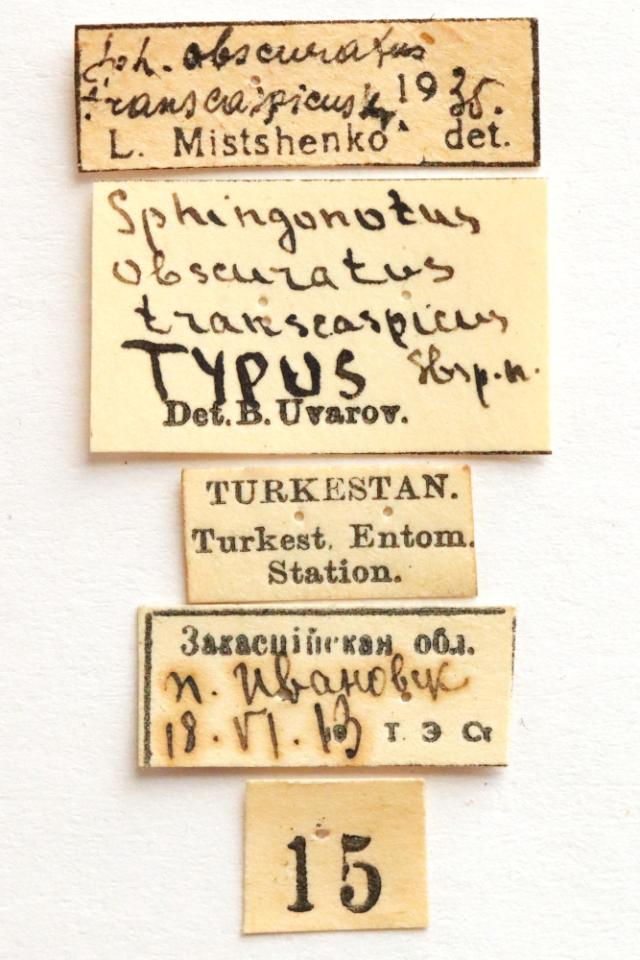 Sph. obscuratus
transcaspicus 1935.
L. Mistshenko det.
Sphingonotus
obscuratus
transcaspicus
TYPUS Sbsp. n.
Det. B. Uvarov.
TURKESTAN.
Turkest. Entom.
Station.
Закаспійская обл.
п. Ивановск
18. VI. 13 Т. Э Ст
15